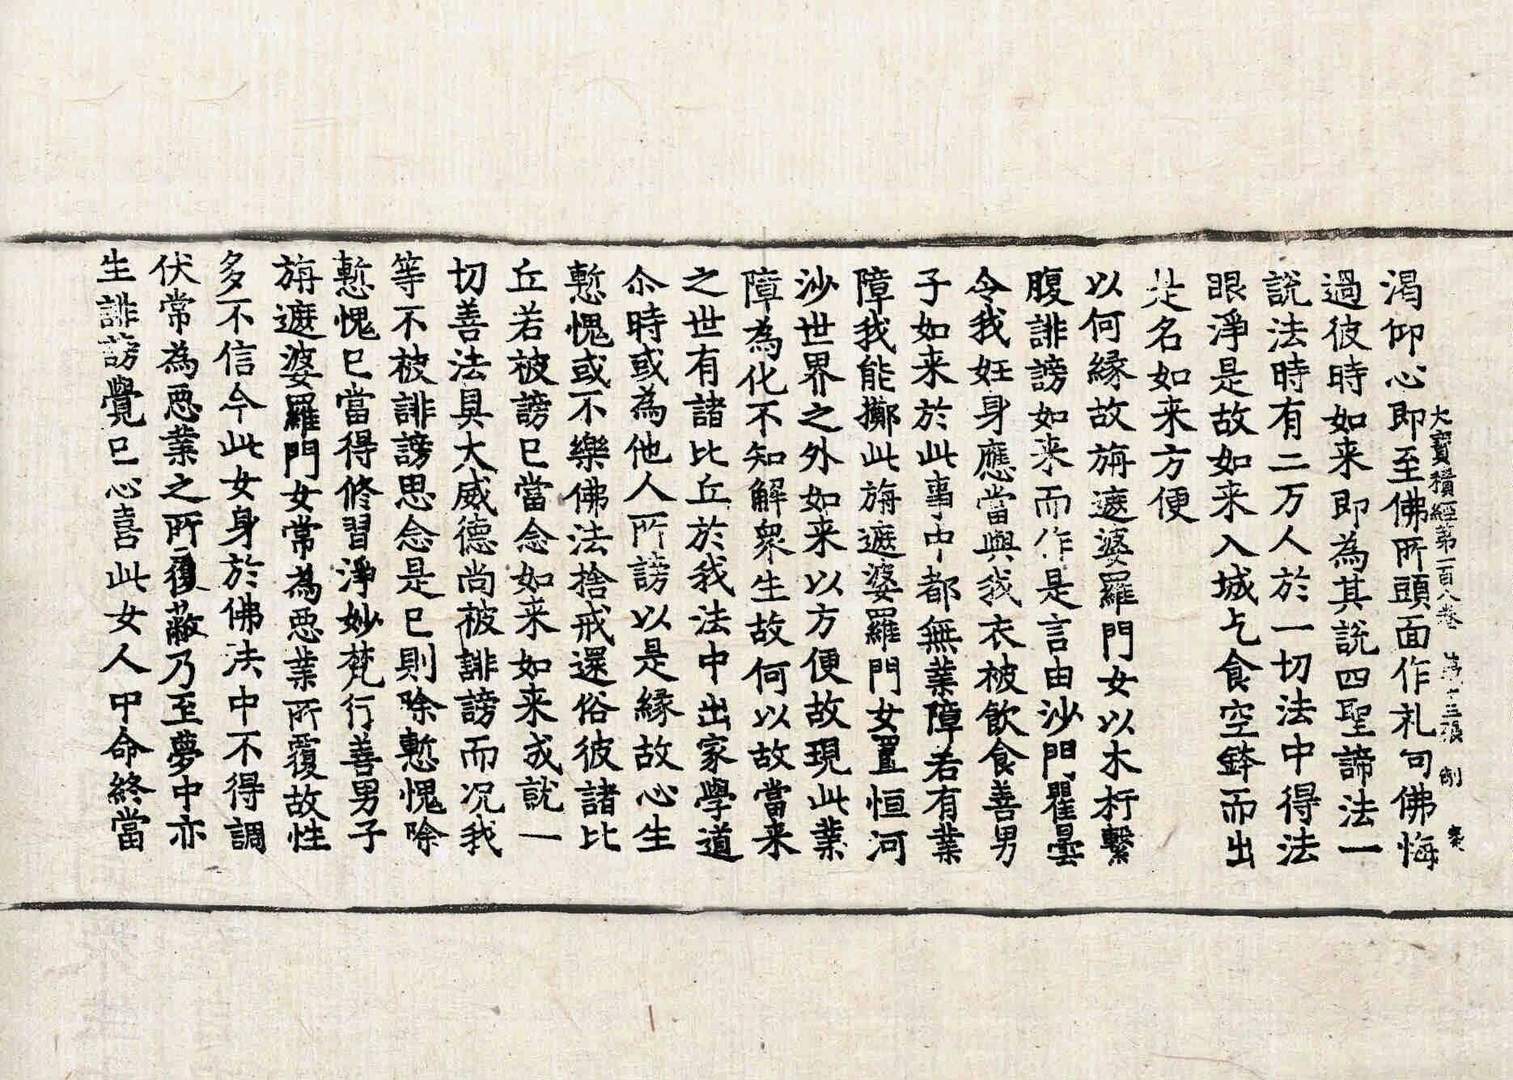 大寶積經第一百八卷 第十三張 剛
渴仰心即至佛所頭面作礼句佛悔
過彼時如来即為其說四聖諦法一
說法時有二万人於一切法中得法
眼淨是故如来入城乞食空鉢而出
是名如来方便
以何緣故旃遮婆羅門女以木杅繫
腹誹謗如来而作是言由沙門瞿曇
令我妊身應當與我衣被飲食善男
子如来於此事中都無業障若有業
障我能擲此旃遮婆羅門女置恒河
沙世界之外如来以方便故現此業
障為化不知解衆生故何以故當来
之世有諸比丘於我法中出家學道
尒時或為他人所謗以是緣故心生
慙愧或不樂佛法捨戒還俗彼諸比
丘若被謗已當念如来如来成就一
切善法具大威德尚被誹謗而况我
等不被誹謗思念是已則除慙愧除
慙愧已當得修習淨妙梵行善男子
旃遮婆羅門女常為惡業所覆故性
多不信今此女身於佛法中不得調
伏常為惡業之所覆蔽乃至夢中亦
生誹謗覺已心喜此女人中命終當